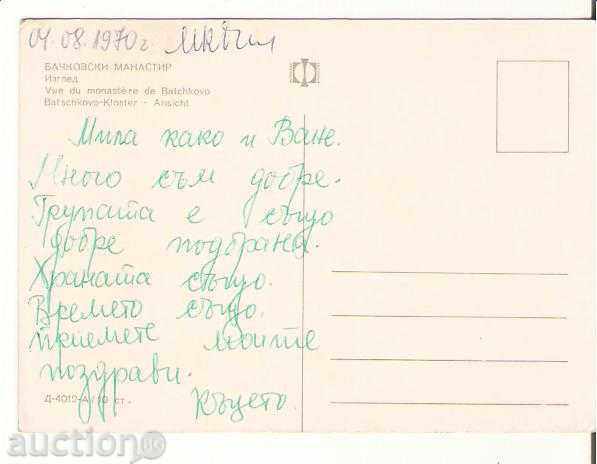 04.08.1970г
БАЧКОВСКИ МАНАСТИР
Изглед
Vue du monastère de Batchkovo
Batschkovo-Kloster - Ansicht
Мила како и Ване.
Много съм добре.
Групата е също
добре подбрана.
Храната също.
Времето също.
приемете моите
поздрави.
Къцето.
Д-4012-А / 10 ст.
auction.BG